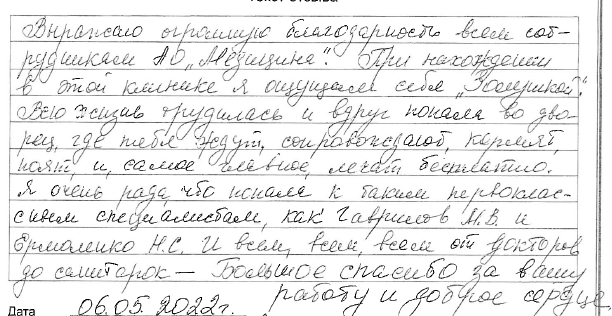 Выражаю огромную благодарность всем сот-
рудникам АО „Медицина". При нахождении
в этой клинике я ощущала себя „Золушкой".
Всю жизнь трудилась и вдруг попала во дво-
рец, где тебя ждут, сопровождают, кормят,
поят, и, самое главное, лечат бесплатно.
Я очень рада, что попала к таким первоклас-
сным специалистам, как Гаврилов М.В. и
Ермоленко Н.С. И всем, всем, всем от докторов
до санитарок — Большое спасибо за вашу
работу и доброе сердце.
Дата 06.05.2022г.